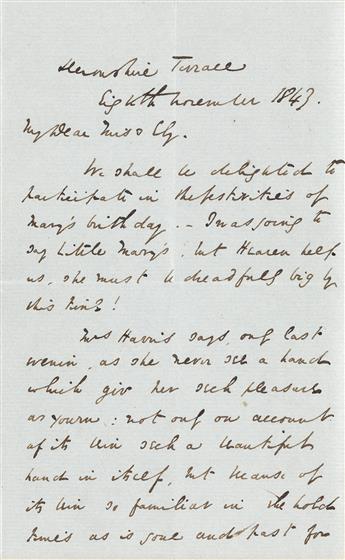 Devonshire Terrace
Eighth November 1843.
My Dear Miss Ely.
We shall be delighted to
participate in the festivities of
Mary's birthday. – I was going to
say little Mary's, but Heaven help
us, she must be dreadfully big by
this time!
Mrs Harris says, only last
evenin, as she never see a hand
which give her sech pleasure
as yourn: not only on account
of its bein sech a beautiful
hand in itself, but because of
its bein so familiar in the hold
times as is gone and past for